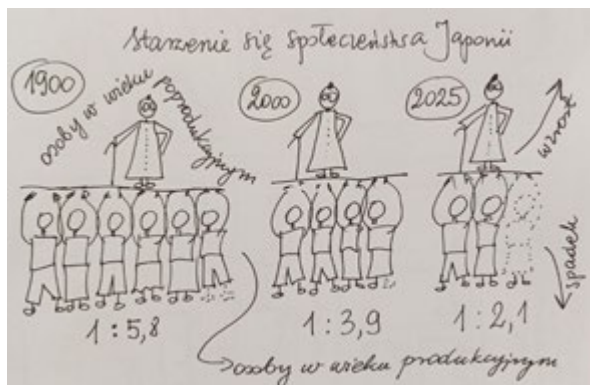 Starzenie się społeczeństwa Japonii
1900
osoby w wieku poprodukcyjnym
2000
2025
wzrost
spadek
1:5,8
1:3,9
1:2,1
osoby w wieku produkcyjnym